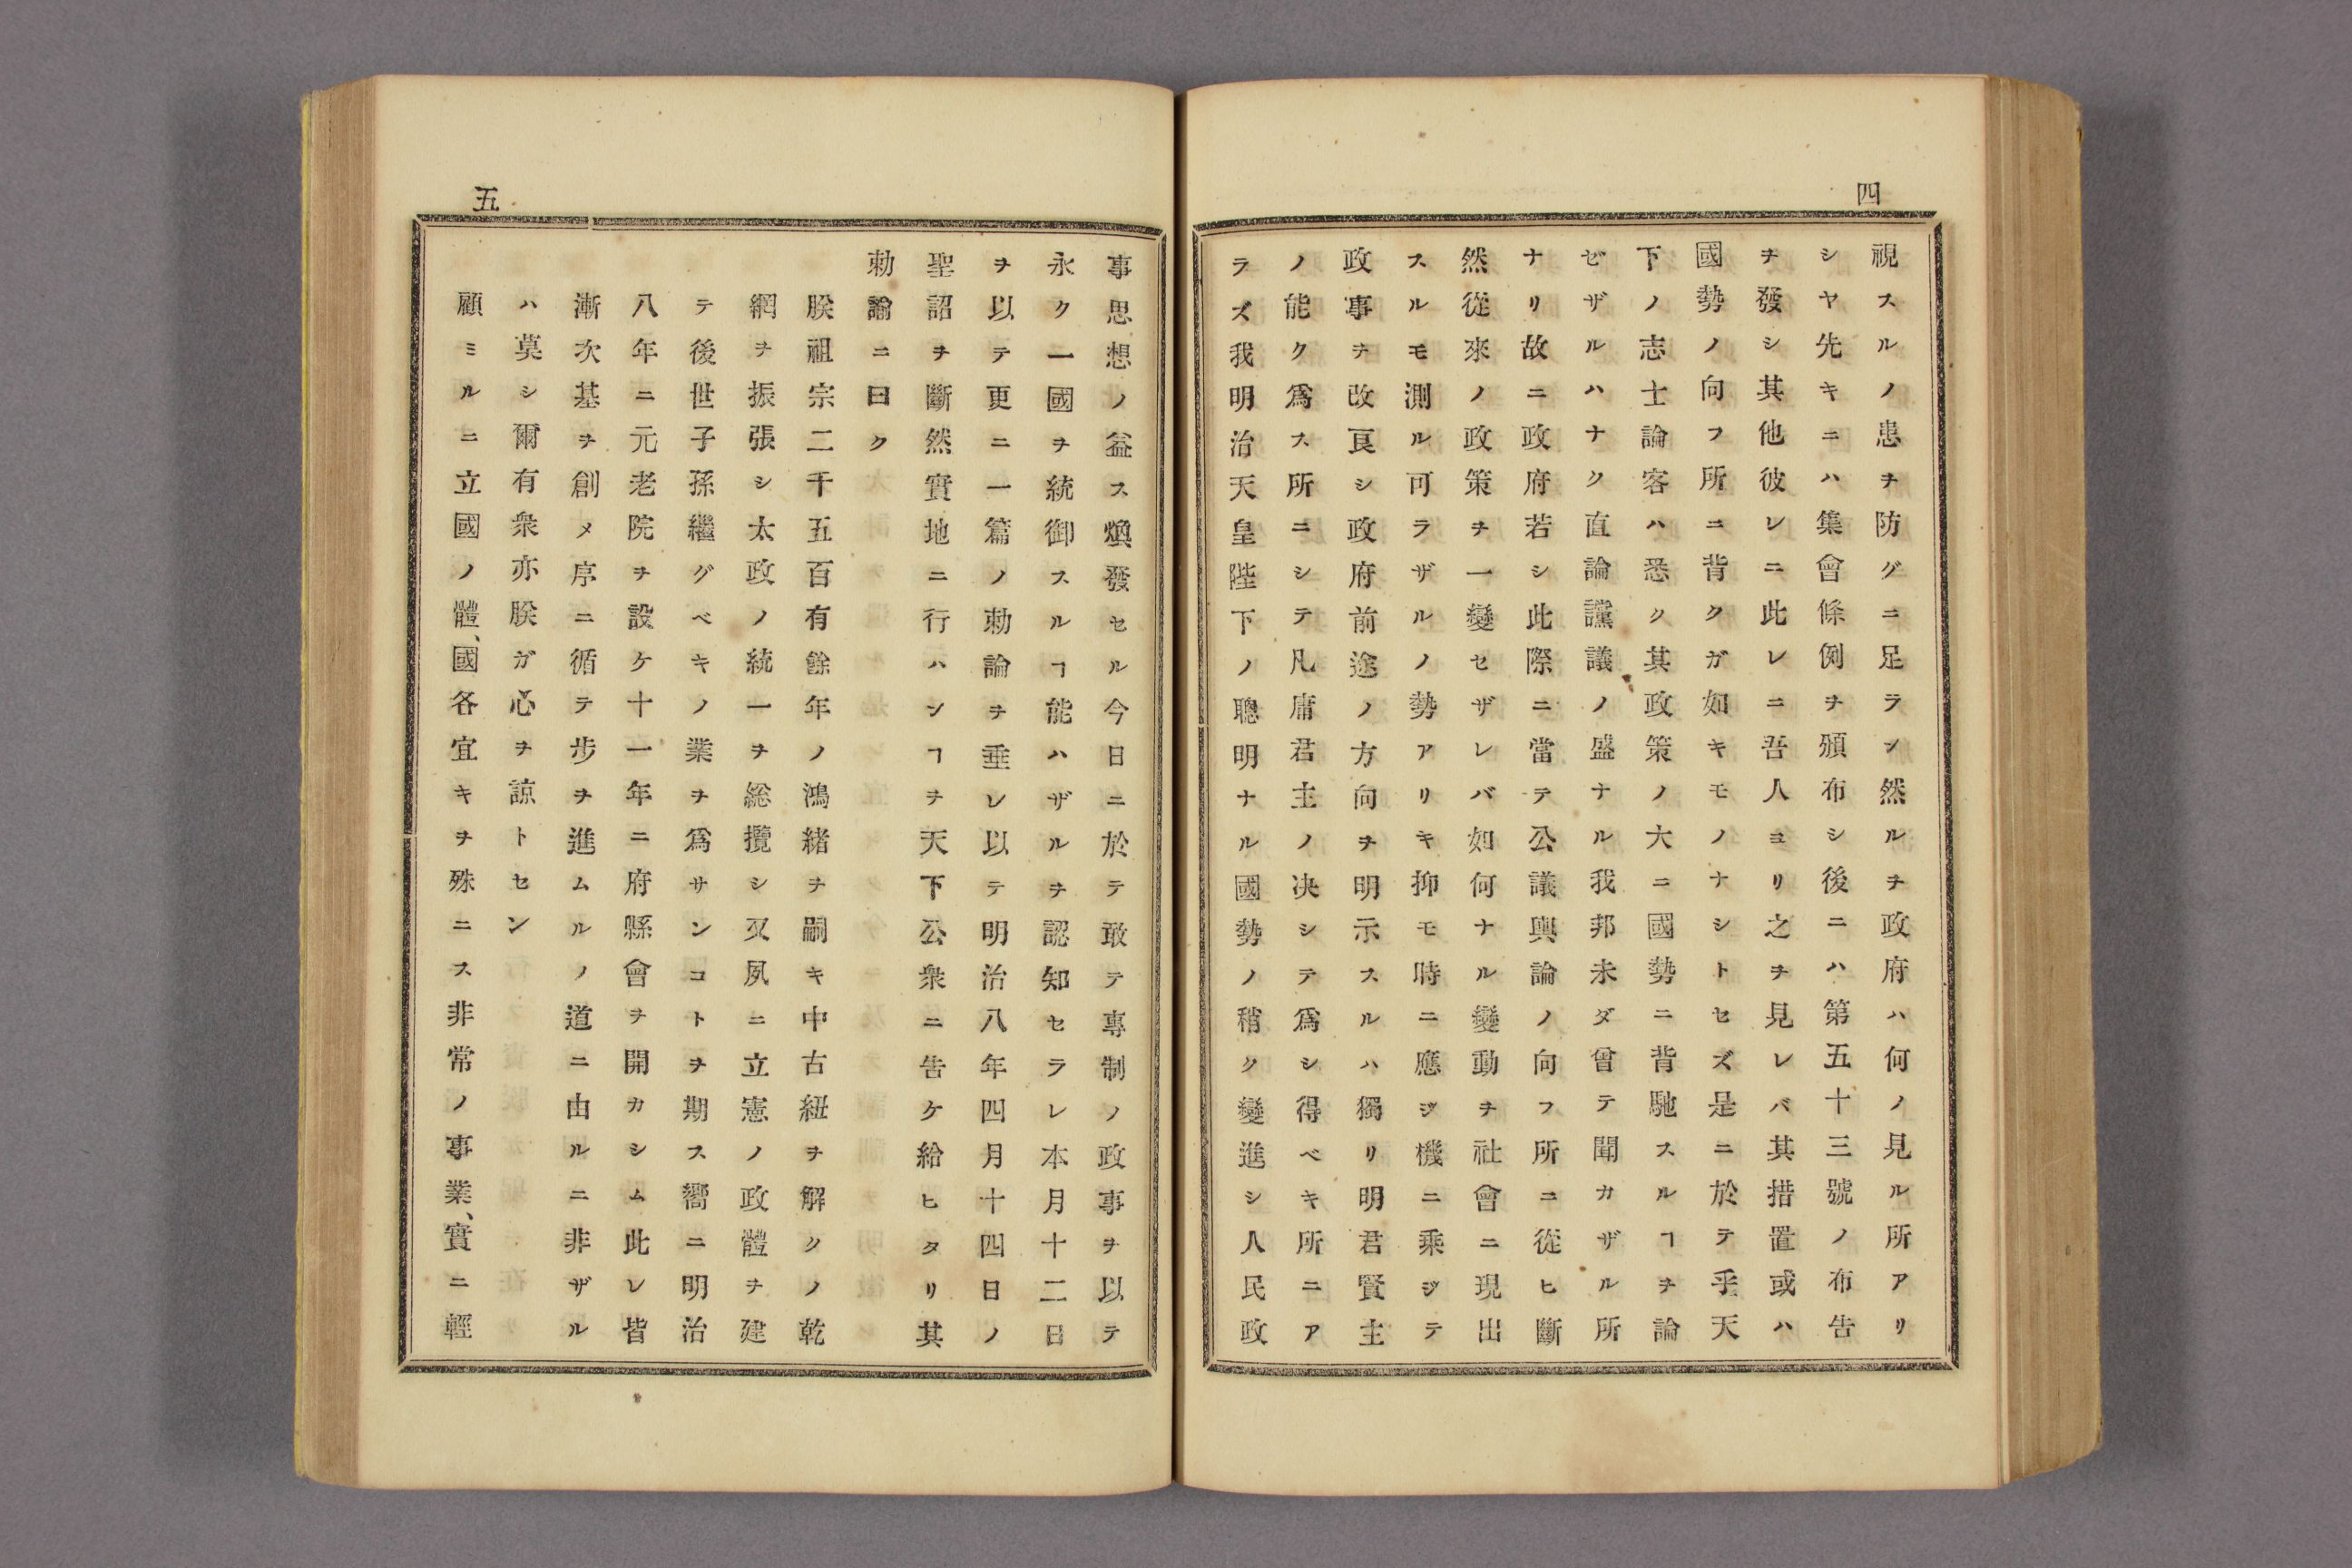 四
視スルノ患ヲ防グニ足ラン然ルヲ政府ハ何ノ見ル所アリ
シヤ先キニハ集會條例ヲ頒布シ後ニハ第五十三號ノ布告
ヲ發シ其他彼レニ此レニ吾人ヨリ之ヲ見レバ其措置或ハ
國勢ノ向フ所ニ背クガ如キモノナシトセズ是ニ於テ乎天
下ノ志士論客ハ悉ク其政策ノ大ニ國勢ニ背馳スルヿヲ論
ゼザルハナク直論讜議ノ盛ナル我邦未ダ曾テ聞カザル所
ナリ故ニ政府若シ此際ニ當テ公議輿論ノ向フ所ニ從ヒ斷
然從來ノ政策ヲ一變セザレバ如何ナル變動ヲ社會ニ現出
スルモ測ル可ラザルノ勢アリキ抑モ時ニ應ジ機ニ乘ジテ
政事ヲ改良シ政府前途ノ方向ヲ明示スルハ獨リ明君賢主
ノ能ク爲ス所ニシテ凡庸君主ノ决シテ爲シ得ベキ所ニア
ラズ我明治天皇陛下ノ聰明ナル國勢ノ稍ク變進シ人民政
五
事思想ノ益ス煥發セル今日ニ於テ敢テ專制ノ政事ヲ以テ
永ク一國ヲ統御スルヿ能ハザルヲ認知セラレ本月十二日
ヲ以テ更ニ一篇ノ勅諭ヲ垂レ以テ明治八年四月十四日ノ
聖詔ヲ斷然實地ニ行ハンヿヲ天下公衆ニ告ケ給ヒタリ其
勅諭ニ曰ク
朕祖宗二千五百有餘年ノ鴻緒ヲ嗣キ中古紐ヲ解クノ乾
網ヲ振張シ太政ノ統一ヲ総攬シ又夙ニ立憲ノ政體ヲ建
テ後世子孫繼グベキノ業ヲ爲サンコトヲ期ス嚮ニ明治
八年ニ元老院ヲ設ケ十一年ニ府縣會ヲ開カシム此レ皆
漸次基ヲ創メ序ニ循テ步ヲ進ムルノ道ニ由ルニ非ザル
ハ莫シ爾有衆亦朕ガ心ヲ諒トセン
顧ミルニ立國ノ體、國各宜キヲ殊ニス非常ノ事業、實ニ輕